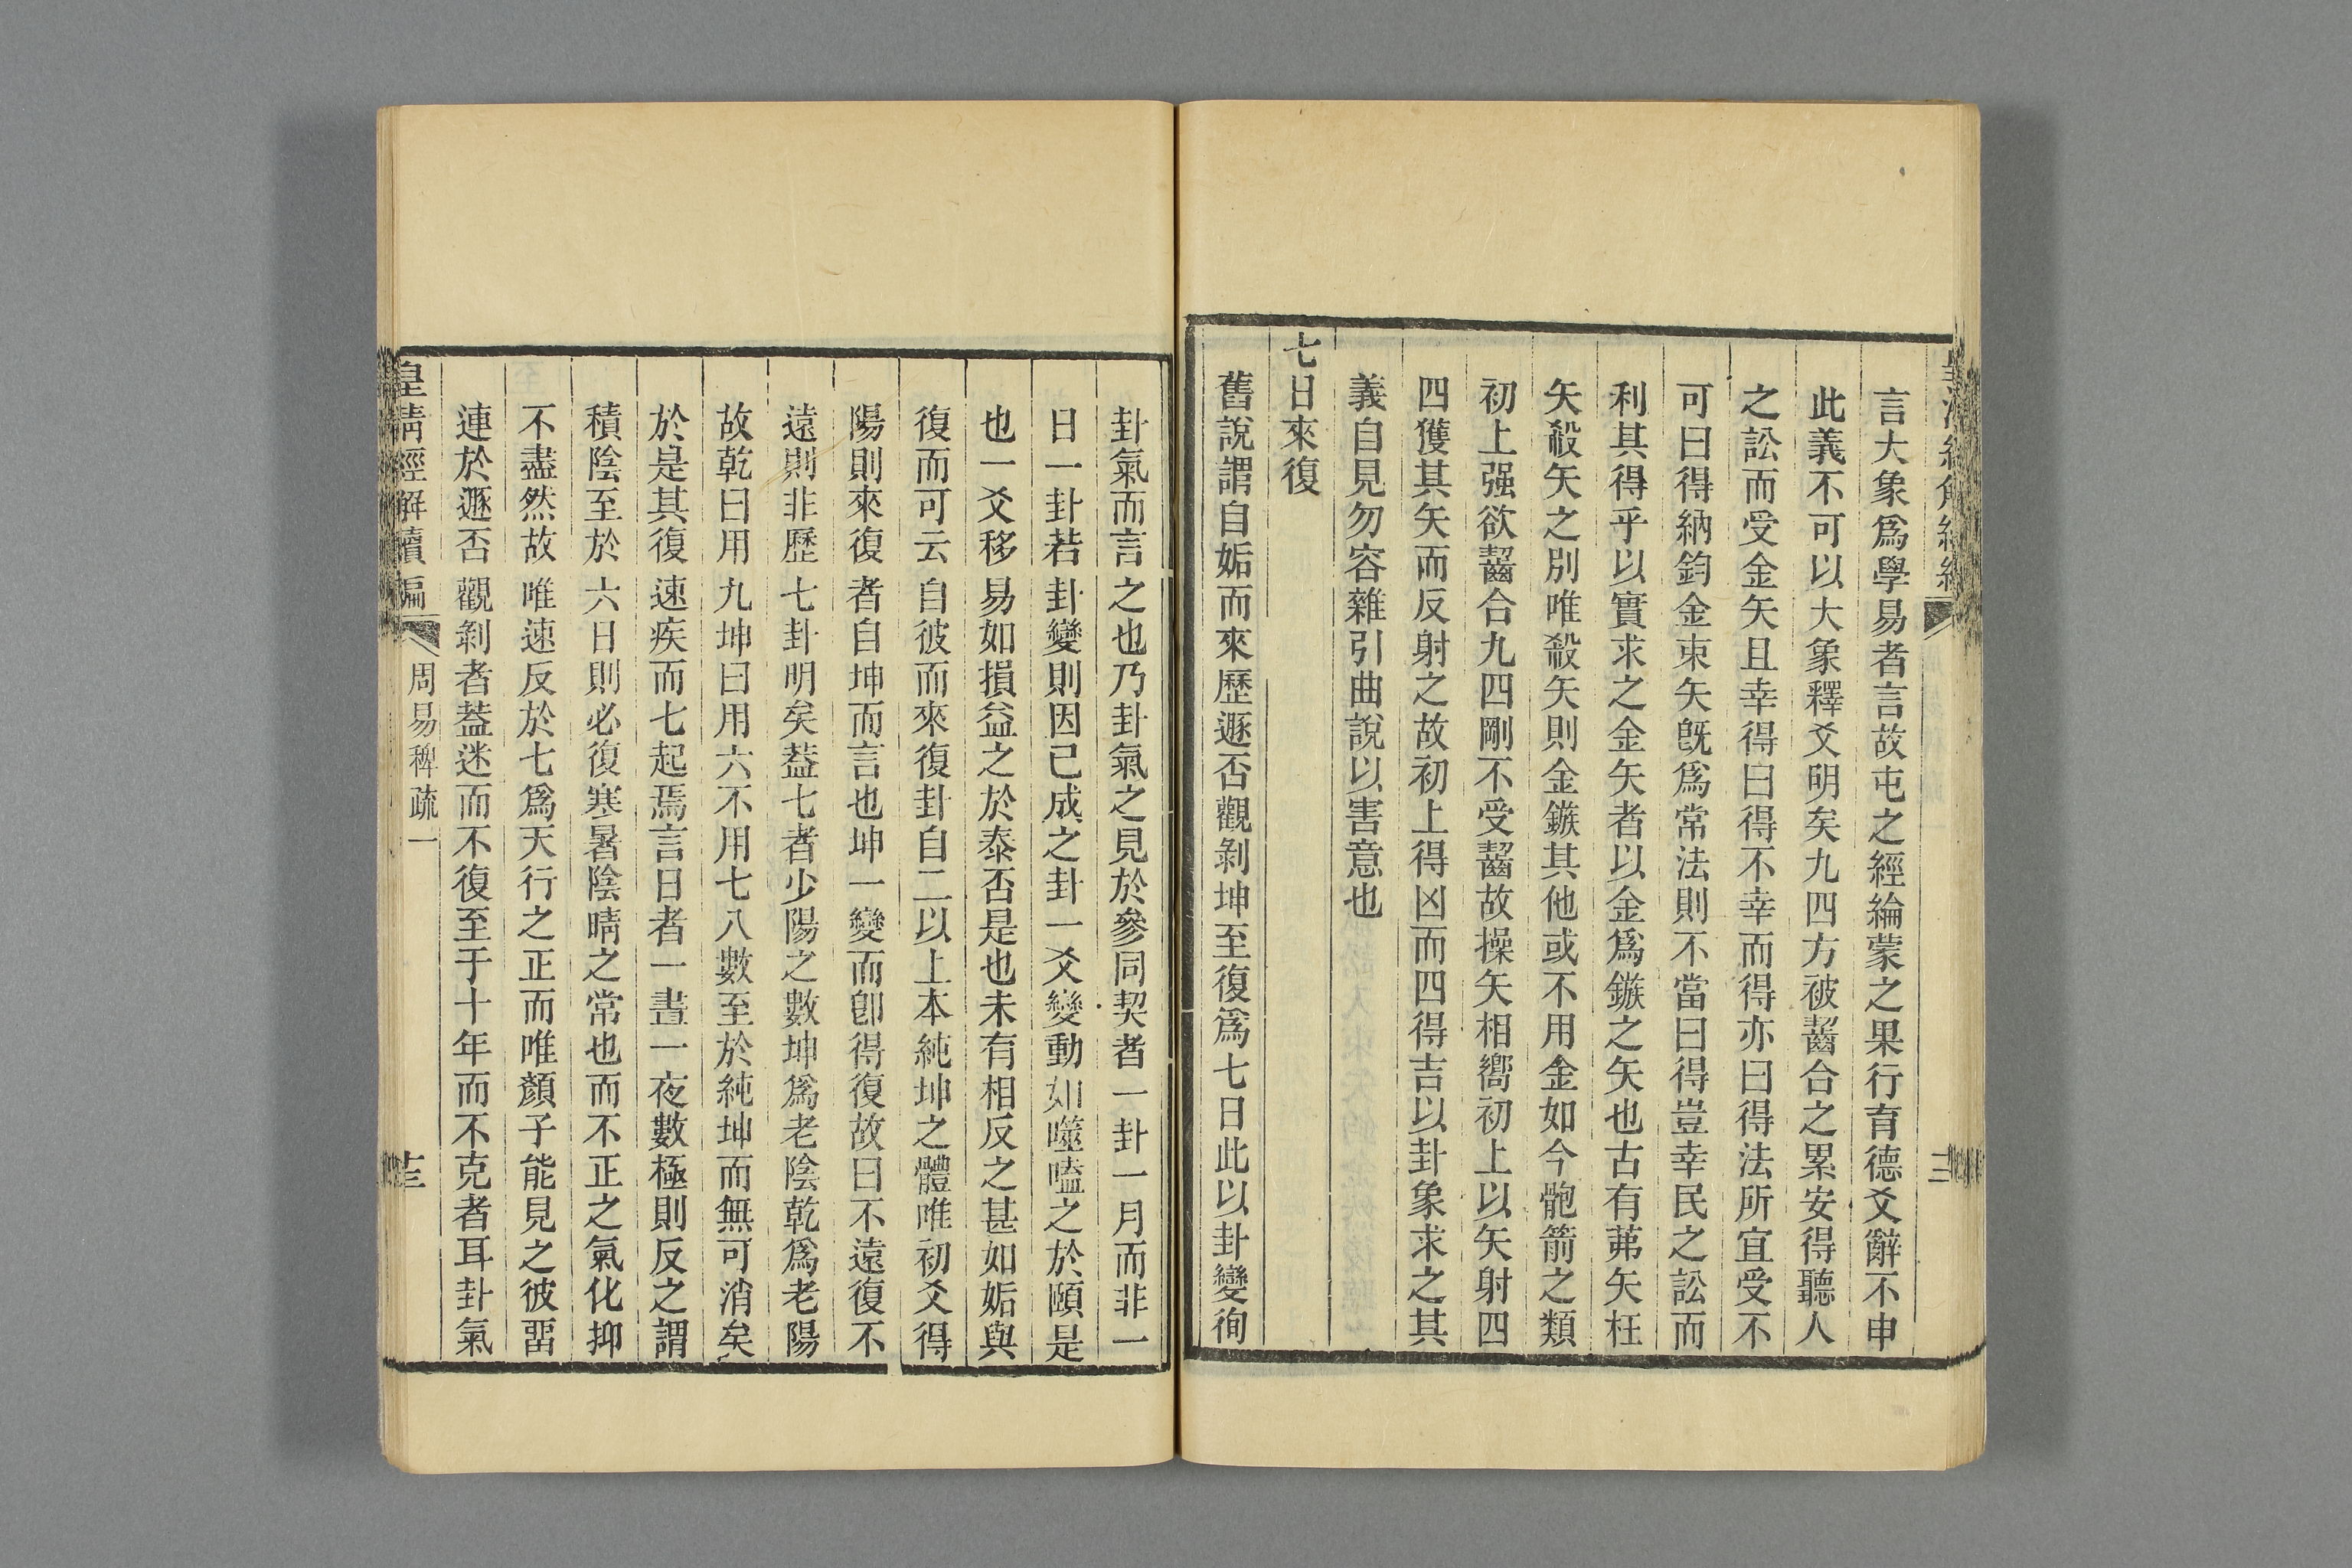 言大象爲學易者言故屯之經綸蒙之果行育德爻辭不申
此義不可以大象釋爻明矣九四方被齧合之累安得聽人
之訟而受金矢且幸得曰得不幸而得亦曰得法所宜受不
可曰得納鈞金束矢旣爲常法則不當曰得豈幸民之訟而
利其得乎以實求之金矢者以金爲鏃之矢也古有茀矢枉
矢殺矢之別唯殺矢則金鏃其他或不用金如今骲箭之類
初上强欲齧合九四剛不受齧故操矢相嚮初上以矢射四
四獲其矢而反射之故初上得凶而四得吉以卦象求之其
義自見勿容雜引曲說以害意也
七日來復
舊說謂自姤而來歷遯否觀剝坤至復爲七日此以卦變徇
卦氣而言之也乃卦氣之見於參同契者一卦一月而非一
日一卦若卦變則因已成之卦一爻變動如噬嗑之於頤是
也一爻移易如損益之於泰否是也未有相反之甚如姤與
復而可云自彼而來復卦自二以上本純坤之體唯初爻得
陽則來復者自坤而言也坤一變而卽得復故曰不遠復不
遠則非歷七卦明矣葢七者少陽之數坤爲老陰乾爲老陽
故乾曰用九坤曰用六不用七八數至於純坤而無可消矣
於是其復速疾而七起焉言日者一晝一夜數極則反之謂
積陰至於六日則必復寒暑陰晴之常也而不正之氣化抑
不盡然故唯速反於七爲天行之正而唯顏子能見之彼畱
連於遯否觀剝者葢迷而不復至于十年而不克者耳卦氣
皇淸經解續編
周易稗疏一